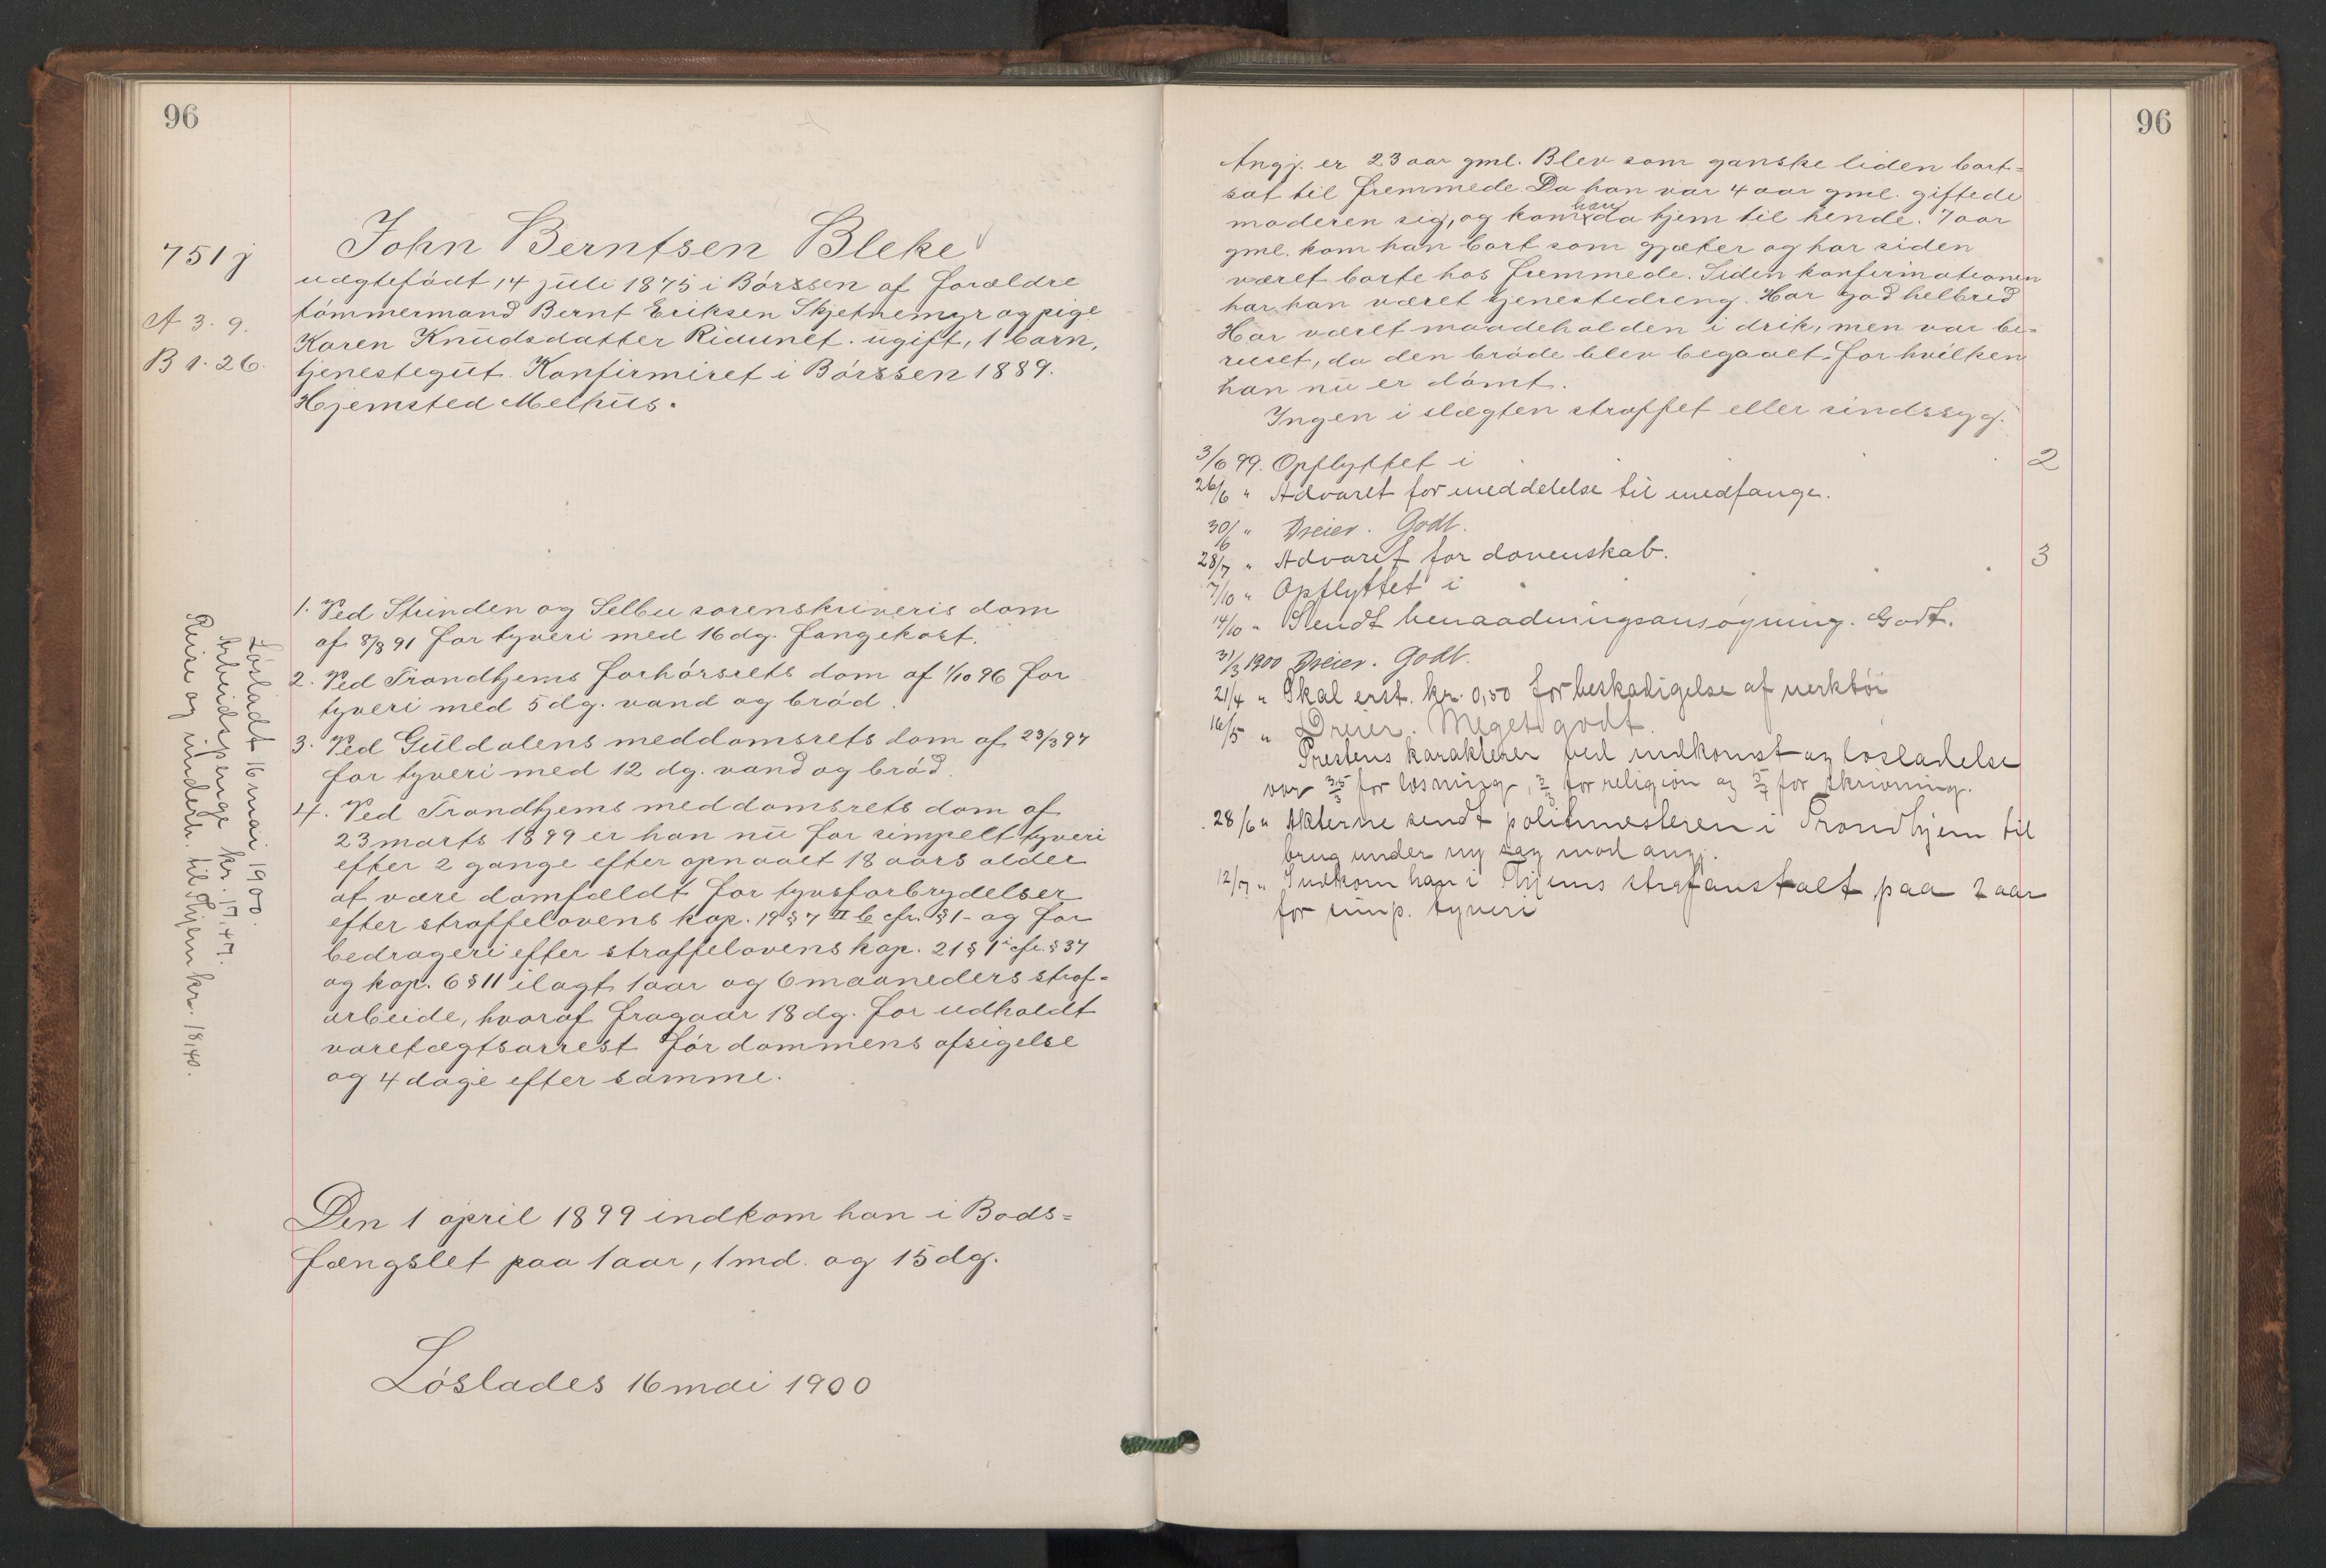 96
751 j
A 3. 9.
B 1. 26.
John Berntsen Bleke
uægtefødt 14 juli 1875 i Börssen af forældre
tömmermand Bernt Eriksen Skjetnemyr og pige
Karen Knudsdatter Ridunet. ugift, 1 barn,
tjenestegut. Konfirmeret i Börssen 1889.
Hjemsted Melhus.
1. Ved Strinden og Selbu sorenskriveris dom
af 8/8 91 for tyveri med 16 dg. fangekost.
2. Ved Trondhjems forhörsrets dom af 1/10 96 for
tyveri med 5 dg. vand og bröd.
3. Ved Guldalens meddomsrets dom af 23/3 97
for tyveri med 12 dg. vand og bröd.
4. Ved Trondhjems meddomsrets dom af
23 marts 1899 er han nu for simpelt tyveri
efter 2 gange efter opnaaet 18 aars alder
at være domfældt for tyvsforbrydelser
efter straffelovens kap. 19 § 7 II b cfr. § 1 - og for
bedrageri efter straffelovens kap. 21 § 1 cfr. § 37
og kap. 6 § 11 ilagt 1 aar og 6 maaneders straf-
arbeide, hvoraf fragaar 18 dg. for udholdt
varetægtsarrest för dommens afsigelse
og 4 dage efter samme.
Den 1 april 1899 indkom han i Bods-
fængslet paa 1 aar, 1 md. og 15 dg.
Löslades 16 mai 1900
Lösladt 16 mai 1900.
Arbeidspenge kr. 17,47.
Reise og underh. til Thjem kr. 18,40.
96
Angj. er 23 aar gml. Blev som ganske liden bort-
sat til fremmede. Da han var 4 aar gml. giftede
moderen sig, og kom han da hjem til hende. 7 aar
gml. kom han bort som gjæter og har siden
været borte hos fremmede. Siden konfirmationen
har han været tjenestedreng. Har god helbred
Har været maadeholden i drik, men var be-
ruset, da den bröde blev begaaet for hvilken
han nu er dömt.
Ingen i slægten straffet eller sindssyg.
3/6 99. Opflyttet i 2
26/6 " Advaret for meddelelse til medfange.
30/6 " Dreier. Godt.
28/7 " Advaret for dovenskab.
7/10 " Opflyttet i 3
14/10 " Sendt benaadningsansøgning. Godt.
31/3 1900 Dreier. Godt.
21/4 " Skal erst. kr. 0,50 for beskadigelse af verktöi
16/5 " Dreier. Meget godt.
Prestens karakterer ved indkomst og løsladelse
var 3,5/3 for læsning, 3/3 for religion og 5/4 for skrivning.
28/6 " Akterne sendt politimesteren i Trondhjem til
brug under ny sag mod angj.
12/7 " Indkom han i Thjems strafanstalt paa 2 aar
for simp. tyveri